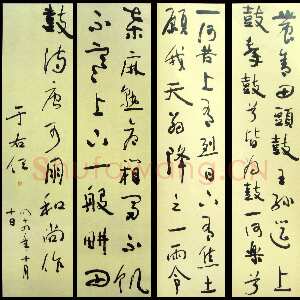 農舍田頭鼓王孫筵上
鼓擊鼓兮皆為鼓一何樂兮
一何苦上有烈日下有焦土
願我天翁降之一雨令
桑麻熟倉箱富不飢
不寒上下一般耕田
鼓詩唐可朋和尚作
于右任
十月
十日
Shufawang.CN